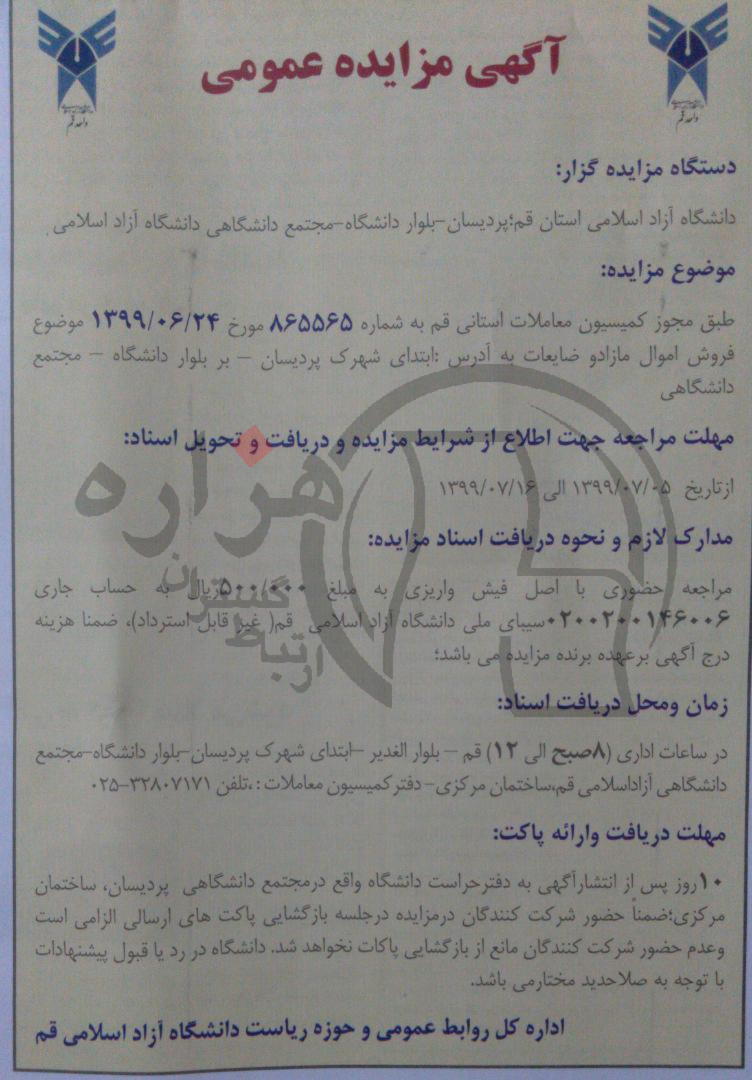 آگهی مزایده عمومی
واحد قم
واحد قم
دستگاه مزایده گزار:
دانشگاه آزاد اسلامی استان قم؛پردیسان-بلوار دانشگاه-مجتمع دانشگاهی دانشگاه آزاد اسلامی .
موضوع مزایده:
طبق مجوز کمیسیون معاملات استانی قم به شماره ۸۶۵۵۶۵ مورخ ۱۳۹۹/۰۶/۲۴ موضوع
فروش اموال مازادو ضایعات به آدرس :ابتدای شهرک پردیسان – بر بلوار دانشگاه – مجتمع
دانشگاهی
مهلت مراجعه جهت اطلاع از شرایط مزایده و دریافت و تحویل اسناد:
ازتاریخ ۱۳۹۹/۰۷/۰۵ الی ۱۳۹۹/۰۷/۱۶
مدارک لازم و نحوه دریافت اسناد مزایده:
مراجعه حضوری با اصل فیش واریزی به مبلغ ۵۰۰/۰۰۰ریال به حساب جاری
۰۲۰۰۲۰۰۱۴۶۰۰۶سیبای ملی دانشگاه آزاد اسلامی قم( غیر قابل استرداد)، ضمنا هزینه
درج آگهی برعهده برنده مزایده می باشد؛
زمان ومحل دریافت اسناد:
در ساعات اداری (۸صبح الی ۱۲) قم – بلوار الغدیر –ابتدای شهرک پردیسان-بلوار دانشگاه-مجتمع
دانشگاهی آزاداسلامی قم،ساختمان مرکزی- دفترکمیسیون معاملات :،تلفن ۳۲۸۰۷۱۷۱-۰۲۵
مهلت دریافت وارائه پاکت:
۱۰روز پس از انتشارآگهی به دفترحراست دانشگاه واقع درمجتمع دانشگاهی پردیسان، ساختمان
مرکزی؛ضمناً حضور شرکت کنندگان درمزایده درجلسه بازگشایی پاکت های ارسالی الزامی است
وعدم حضور شرکت کنندگان مانع از بازگشایی پاکات نخواهد شد. دانشگاه در رد یا قبول پیشنهادات
با توجه به صلاحدید مختارمی باشد.
اداره کل روابط عمومی و حوزه ریاست دانشگاه آزاد اسلامی قم
هزاره
گستران
ارتباط